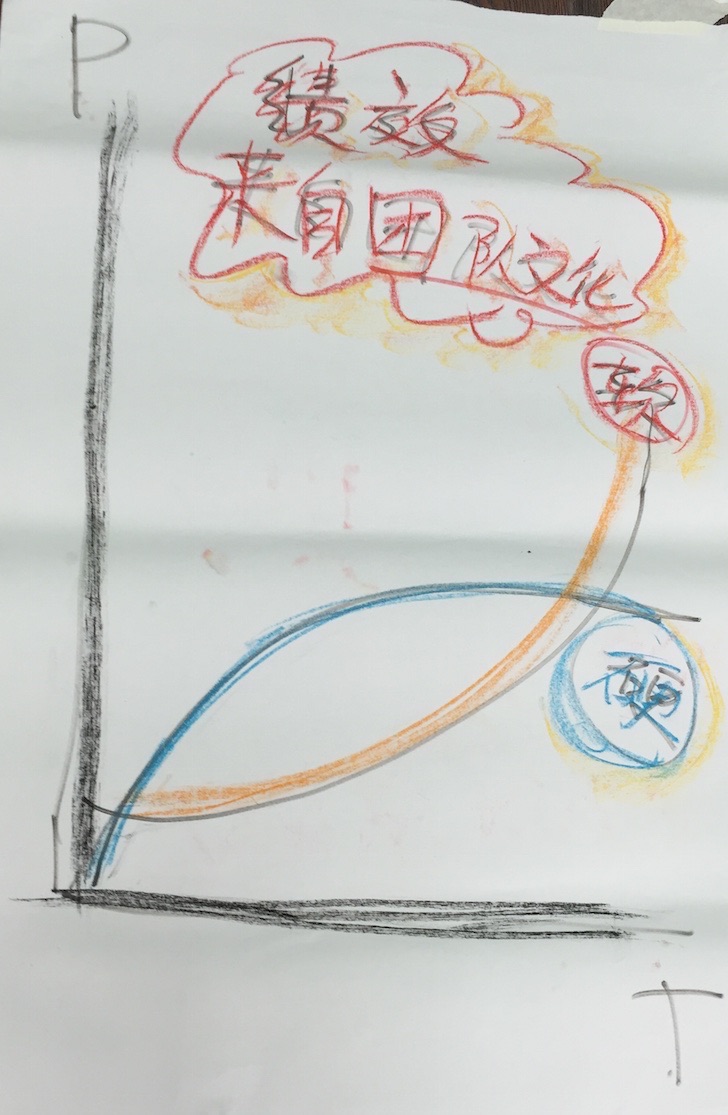 P
绩效
来自团队文化
软
硬
T